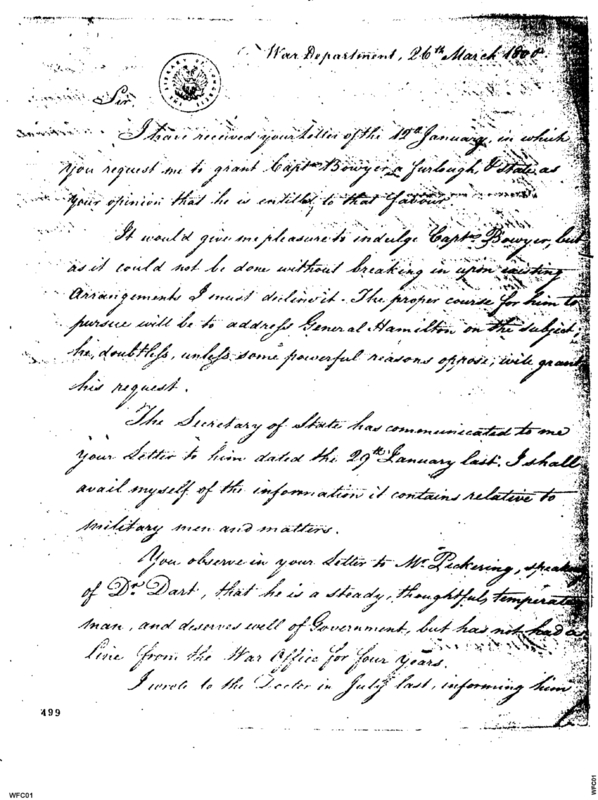 War Department, 26th March 1800.
THE LIBRARY OF CONGRESS
Sir
I have received your Letter of the 19th January, in which
you request me to grant Captn Bowyer a furlough, & state as
your opinion that he is entitled to that favour
It would give me pleasure to indulge Captn Bowyer, but
as it could not be done without breaking in upon existing
Arrangements I must decline it. The proper course for him to
pursue will be to address General Hamilton on the subject,
he, doubtless, unless some powerful reasons oppose, will grant
his request.
The Secretary of State has communicated to me
your Letter to him dated the 29th January last. I shall
avail myself of the information it contains relative to
military men and matters.
You observe in your Letter to Mr Pickering, speaking
of Dr Dart, that he is a steady, thoughtful, temperate
man, and deserves well of Government, but has not had a
Line from the War Office for four years.
I wrote to the Doctor in July last, informing him
499
WFC01
WFC01